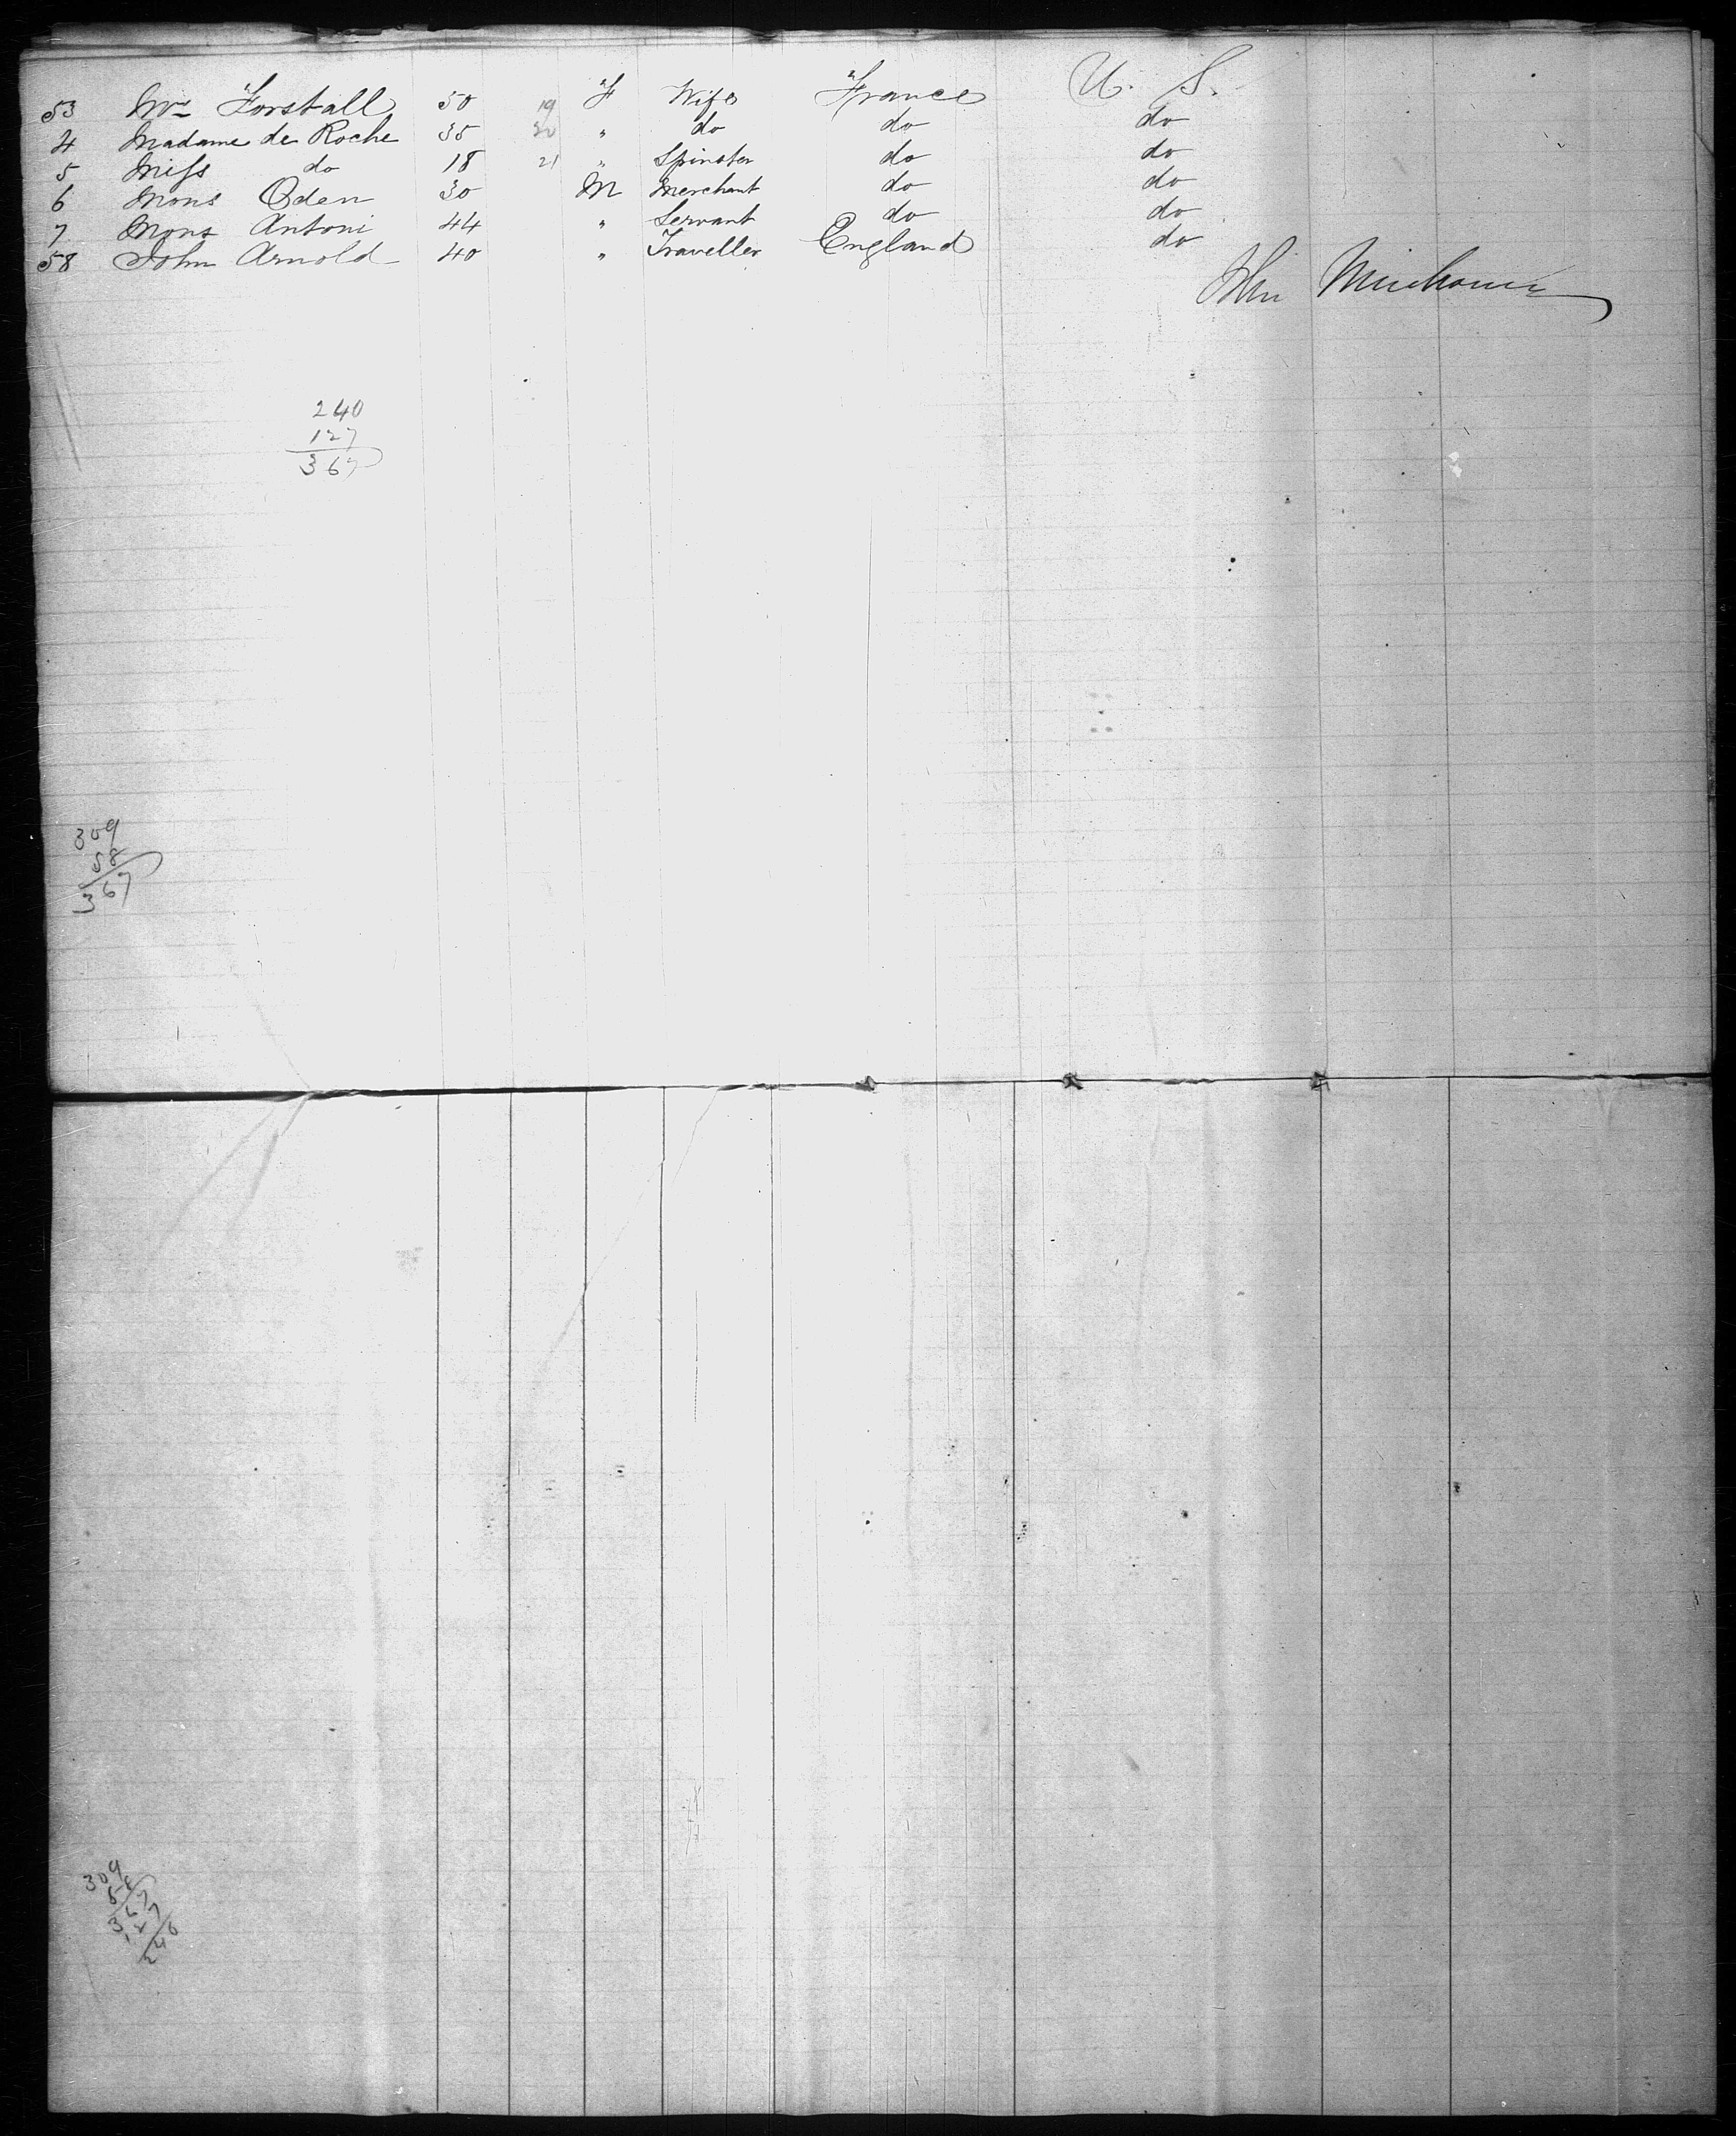 53 Mrs Forstall 50 19 F Wife France U. S.
4 Madame de Roche 35 20 " do do do
5 Miss do 18 21 " Spinster do do
6 Mons Oden 30 M Merchant do do
7 Mons Antoni 44 " Servant do do
58 John Arnold 40 " Traveller England do
John
240
127
367
309
58
367
309
58
367
127
240